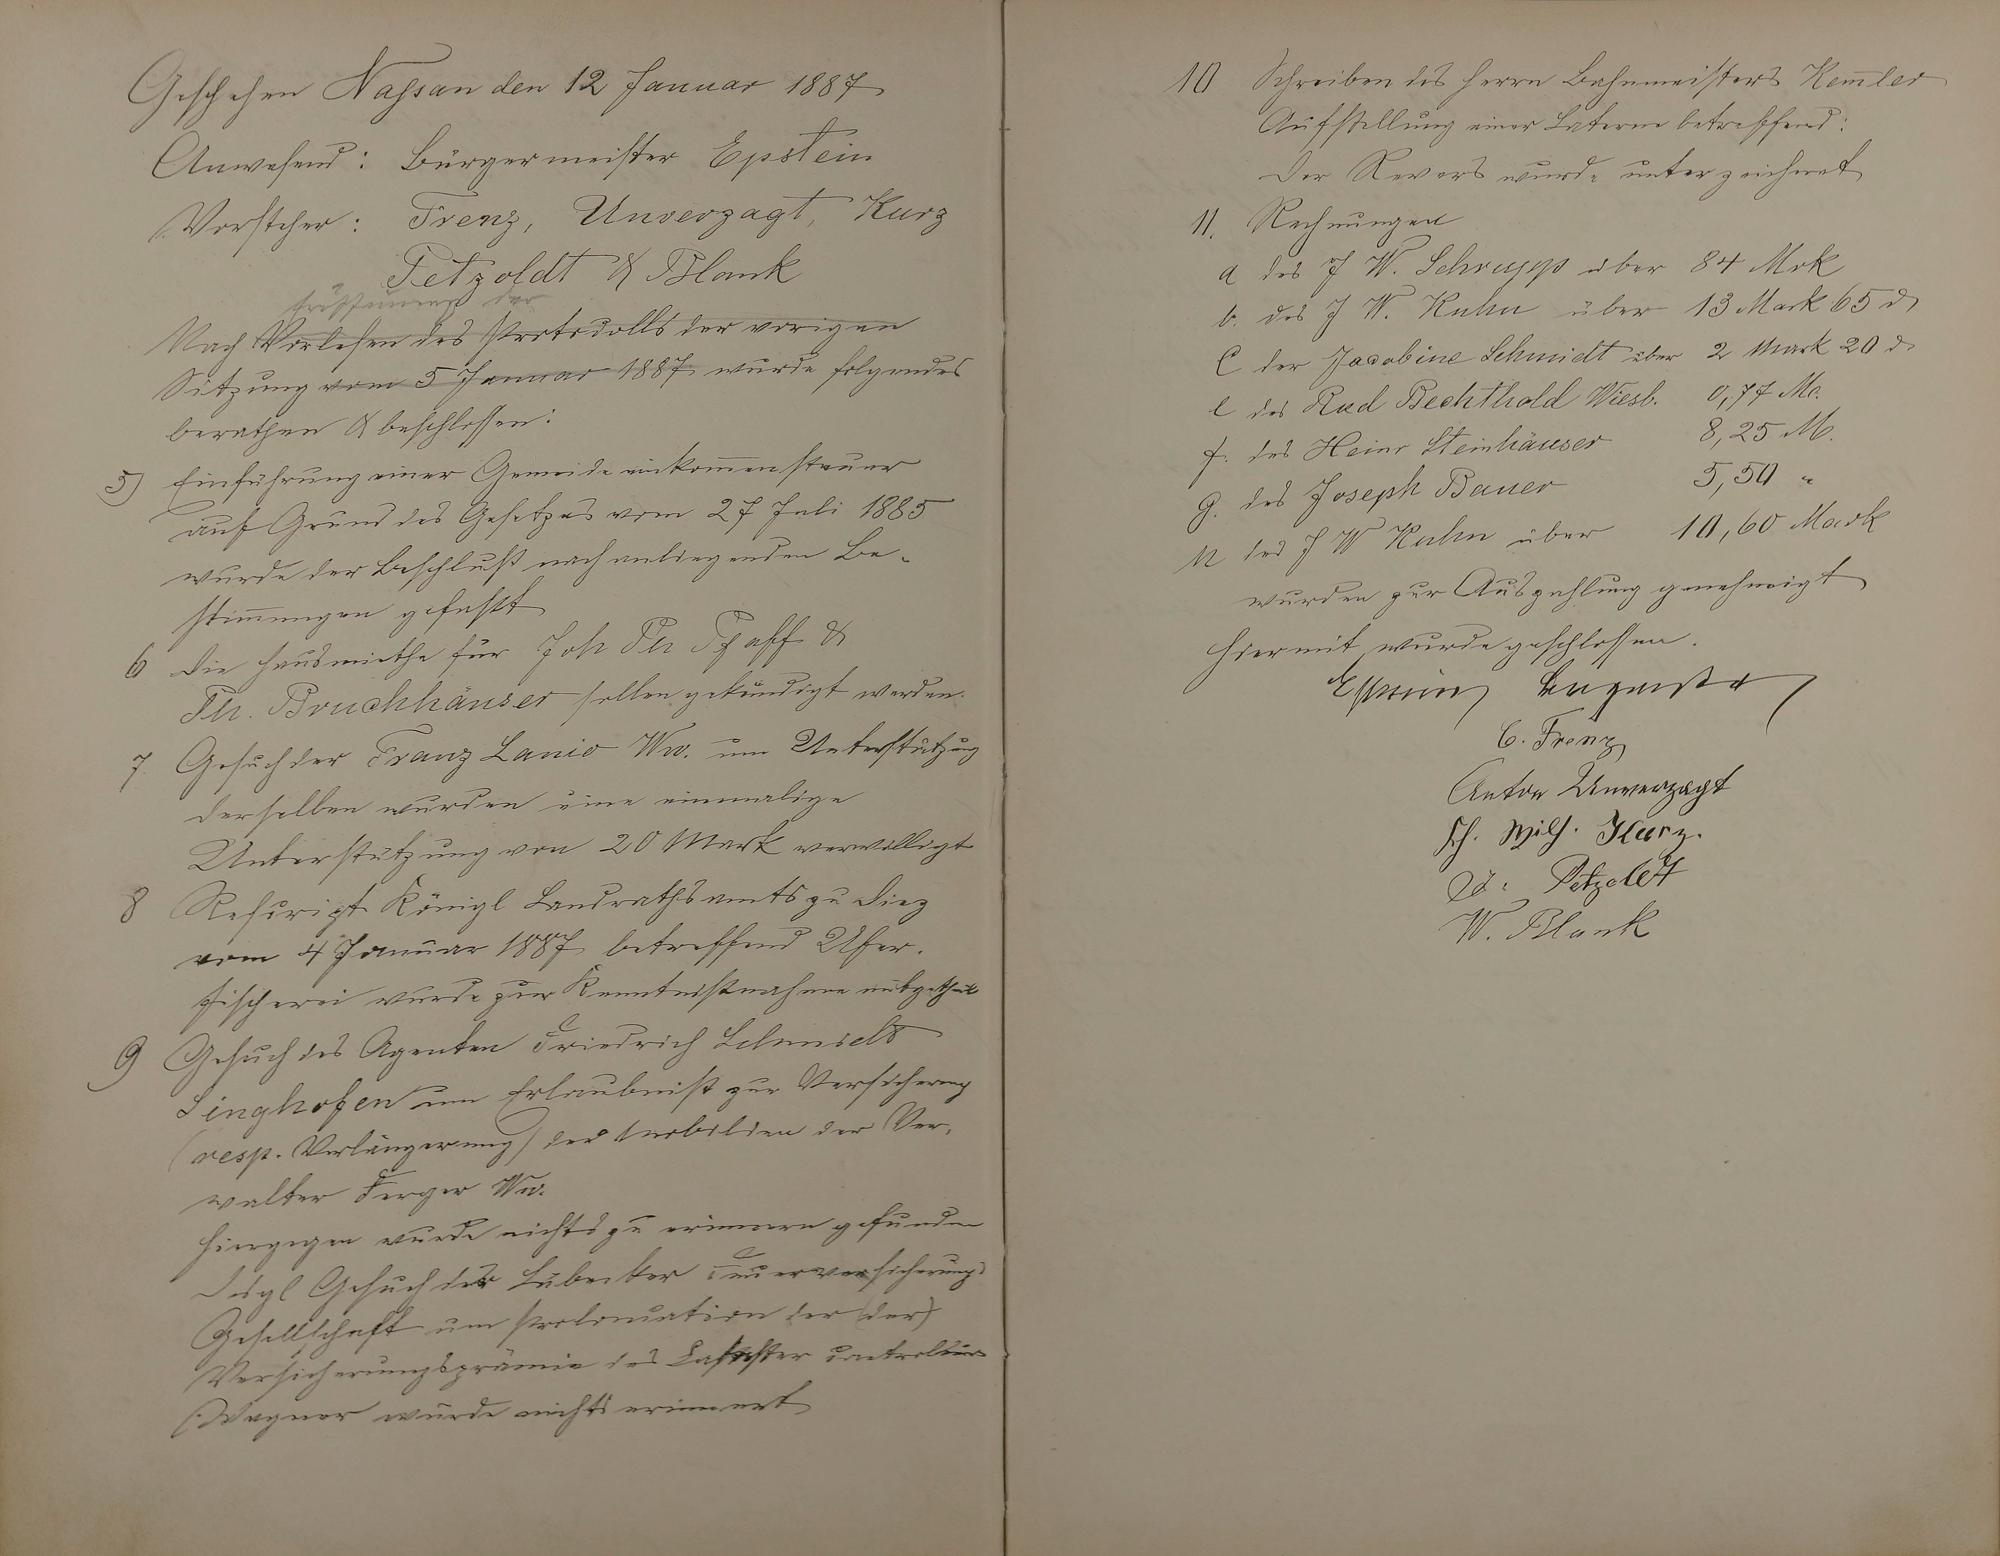 Geschehen Naßau den 12 Januar 1887
Anwesend: Bürgermeister Epstein
Vorsteher: Frenz, Unverzagt, Kurz
Petzoldt & Blank
Eröffnung der
Nach Vorlesen des Protocolls der vorigen
Sitzung vom 5 Januar 1887 wurde folgendes
berathen & beschlossen:
5) Einführung einer Gemeindeeinkom̄ensteuer
auf Grund des Gesetzes vom 27 Juli 1885
wurde der Beschluß nach anliegenden Be-
stim̄ungen gefaßt
6 Die Hausmiethe für Joh Ph Pfaff &
Ph. Bruchhäuser sollen gekündigt werden.
7. Gesuch der Franz Lanio Ww. um Unterstützung
derselben wurden eine einmalige
Unterstützung von 20 Mark verwilligt
8 Rescript Königl Landrathsamts zu Diez
vom 4 Januar 1887 betreffend Ufer-
fischerei wurde zur Kenntnißnahme mitgetheilt
9 Gesuch des Agenten Friedrich
Singhofen um Erlaubniß zur Versicherung
(resp. Verlängerung) der Mobilien der Ver-
walter Ferger Ww.
Hiergegen wurde nichts zu erinnern gefunden
Desgl Gesuch der Lübecker Feuerversicherungs
Gesellschaft um der (der)
Versicherungsprämie des Kataster
Wagner wurde nichts erinnert
10 Schreiben des Herrn Bahnmeisters Kem̄ler
Aufstellung einer Laterne betreffend:
Der Revers wurde unterzeichnet
11. Rechnungen
a des J W. Schrupp über 84 Mrk
b. des J W. Kuhn über 13 Mark 65 d
C der Jacobine Schmidt über 2 Mark 20 d
e des Rud Bechthold Wiesb. 0,77 M.
f. des Heinr Steinhäuser 8,25 M.
g. des Joseph Bauer 5,50 "
h des J W Kuhn über 10,60 Mark
wurden zur Auszahlung genehmigt
Hiermit wurde geschlossen.
Epstein Bürgermstr
C. Frenz
Anton Unverzagt
Ph. Wilh. Kurz.
Petzoldt
W. Blank